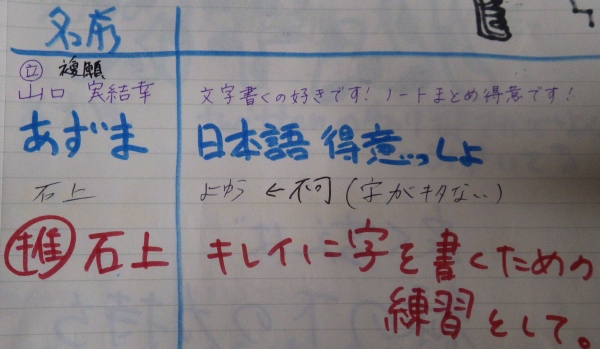 名前
立 複願
山口 実結幸 文字書くの好きです! ノートまとめ得意です!
あずま 日本語 得意っしょ
石上 よゆう ← 不可 (字がキタない)
推 石上 キレイに字を書くための
練習として。